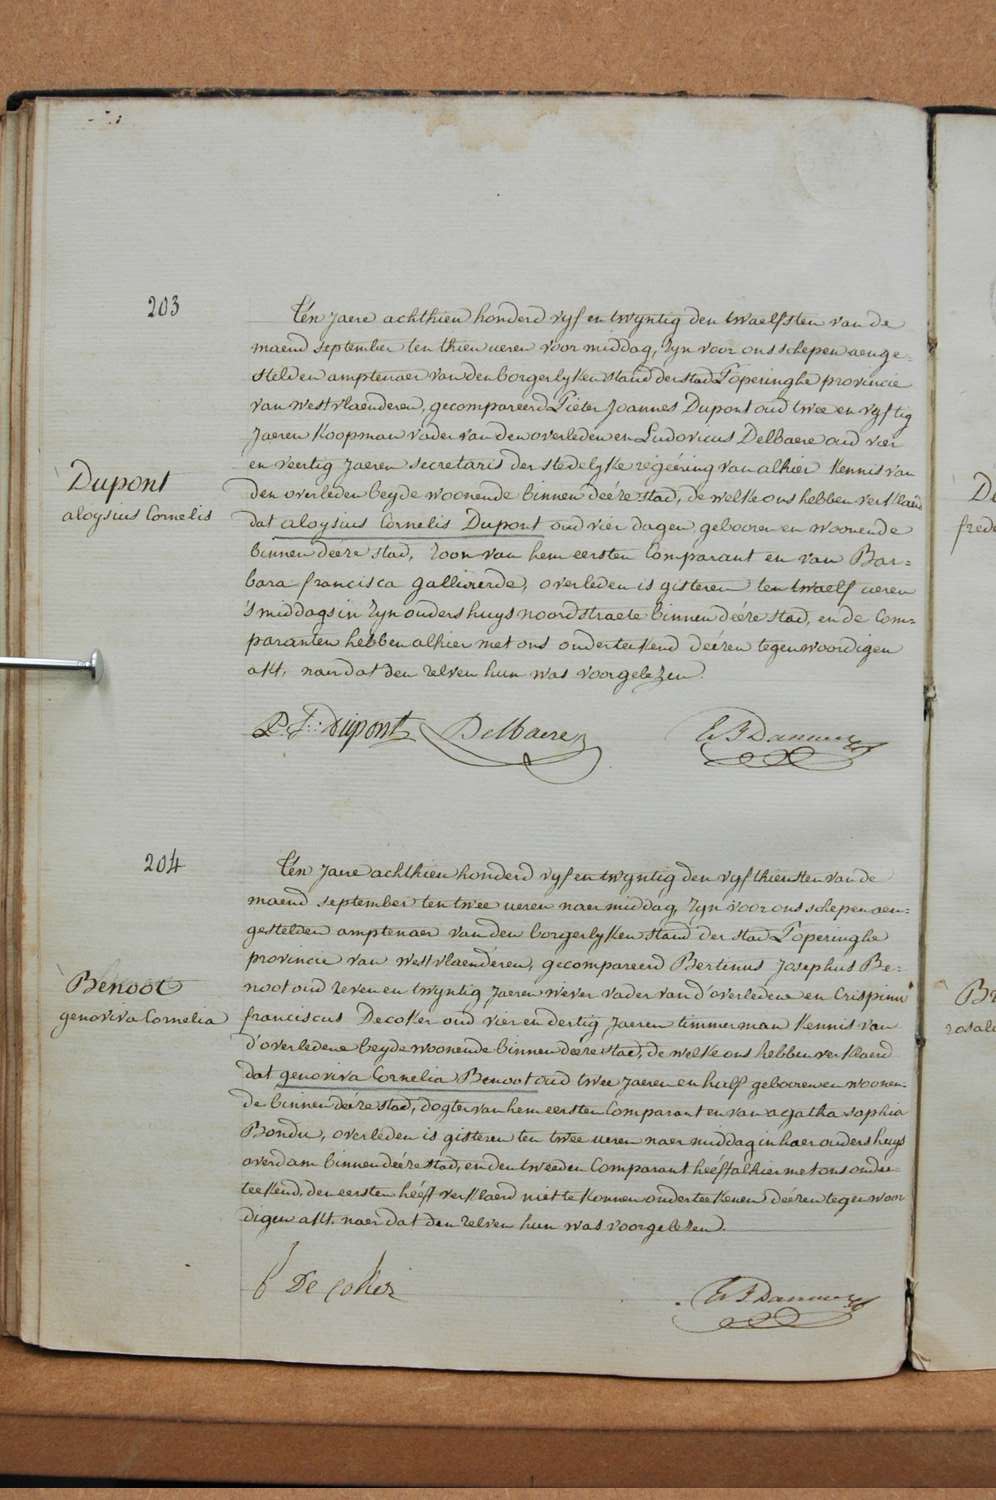 203
Dupont
aloysius Cornelis
t'én Jaere achthien honderd vyf en twyntig den twaelfsten van de
maend september ten thien ueren voor middag, zyn voor ons schepen aenge=
stelden amptenaer van den borgerlyken stand der stad Poperinghe provincie
van westvlaenderen, gecompareerd Pieter Joannes Dupont oud twee en vyftig
Jaeren Koopman vader van den overleden en Ludovicus Delbaere oud vier
en veertig Jaeren secretaris der stedelyke regeéring van alhier kennis van
den overleden beyde woonende binnen deéze stad, de welke ons hebben verklaerd
dat aloysius Cornelis Dupont oud vier dagen geboren en woonende
binnen deéze stad, zoon van hem eersten Comparant en van Bar=
bara francisca , overleden is gisteren ten twaelf ueren
's middags in zyn ouders huys noordstraete binnen deéze stad, en de Com=
paranten hebben alhier met ons onderteekend deézen tegenwoordigen
akt, naer dat den zelven hun was voorgelezen.
P. J. Dupont Delbaere
204
Benoot
genoviva Cornelia
t'én Jaere achthien honderd vyf en twyntig den vyfthiensten van de
maend september ten twee ueren naer middag, zyn voor ons schepen aen=
gestelden amptenaer van den borgerlyken stand der stad Poperinghe
provincie van westvlaenderen, gecompareerd Bertinus Josephus Be=
noot oud zeven en twyntig Jaeren wever vader van d'overledene en Crispinus
franciscus Decoker oud vier en dertig Jaeren timmerman kennis van
d'overledene beyde woonende binnen deéze stad, de welke ons hebben verklaerd
dat genoviva Cornelia Benoot oud twee Jaeren en half geboren en woonen=
de binnen deéze stad, dogter van hem eersten Comparant en van agatha sophia
Bondu, overleden is gisteren ten twee ueren naer middag in haer ouders huys
overdam binnen deéze stad, en den tweeden Comparant heéft alhier met ons onder=
teekend, den eersten heéft verklaerd niet te konnen onderteekenen deézen tegenwoor
digen akt, naer dat den zelven hun was voorgelezen.
f De Coker